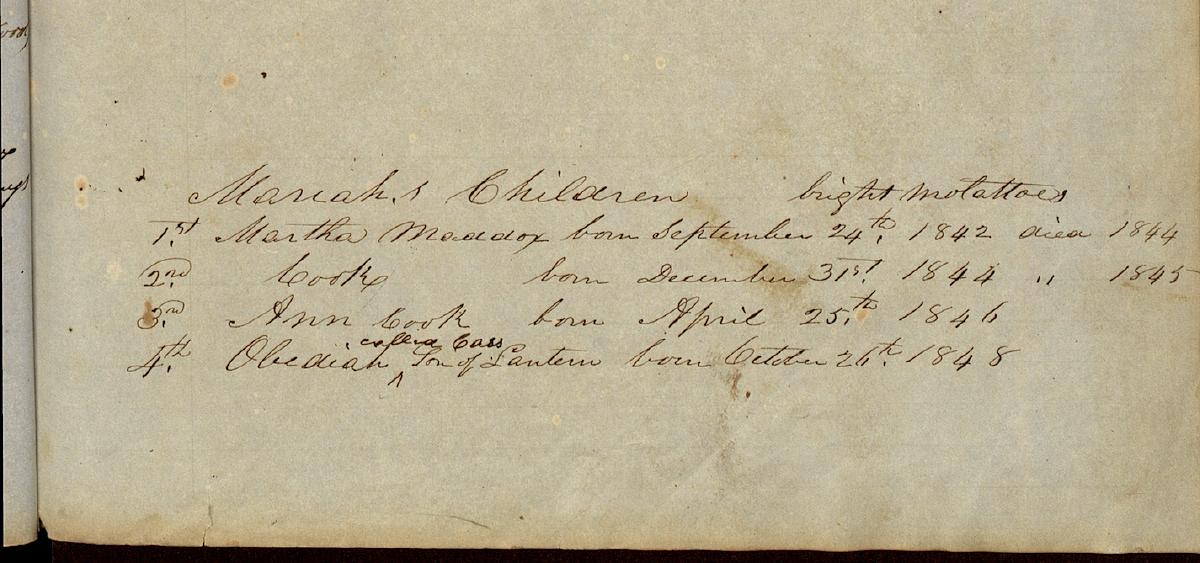 Mariah,s Children bright molattoes
1.st Martha Maddox born September 24th. 1842 died 1844
2.nd Cook born December 31st. 1844 " 1845
3.rd Ann Cook born April 25.th 1846
called Cass
4.th Obediah ^ Son of Lantern born October 26th. 1848